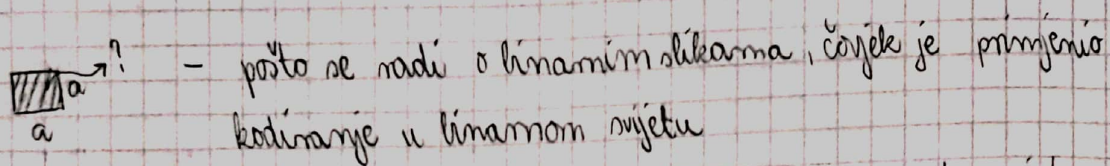 ? - pošto se radi o binarnim slikama, čovjek je primjenio
a
a kodiranje u binarnom svijetu